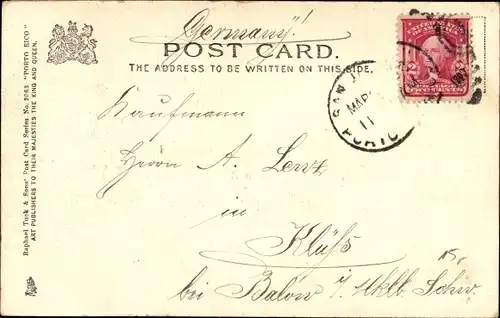 (Germany!)
POST CARD.
THE ADDRESS TO BE WRITTEN ON THIS SIDE.
Raphael Tuck & Sons' Post Card Series No. 2083 "PORTO RICO"
ART PUBLISHERS TO THEIR MAJESTIES THE KING AND QUEEN.
2 2
TWO CENTS
SAN
MAR
11
PORTO
Kaufmann
Herrn A. Lenz
in
Klüß
bei Balow i/ Mklb. Schw.